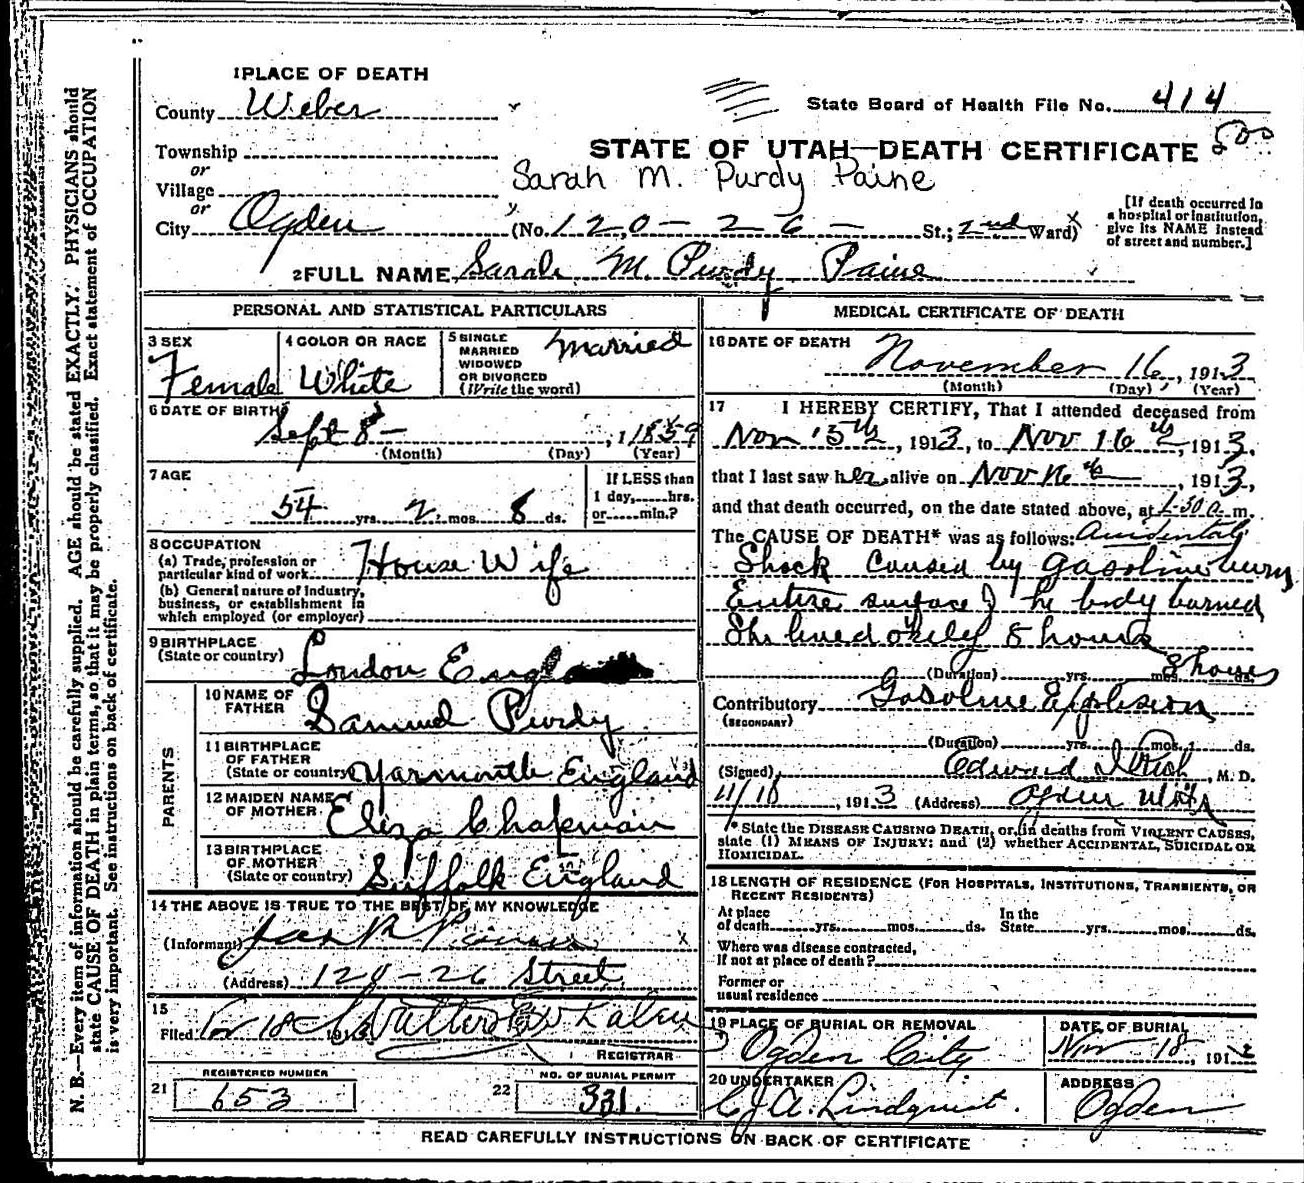 1 PLACE OF DEATH
County Weber
State Board of Health File No. 414
Township
or
Village
or
City Ogden
STATE OF UTAH—DEATH CERTIFICATE 500
Sarah M. Purdy Paine
(No. 120 - 26 - St.; 2nd Ward)
[If death occurred in
a hospital or institution,
give its NAME instead
of street and number.]
2 FULL NAME Sarah M. Purdy Paine
PERSONAL AND STATISTICAL PARTICULARS
3 SEX
Female
4 COLOR OR RACE
White
5 SINGLE
MARRIED
WIDOWED
OR DIVORCED
(Write the word)
Married
6 DATE OF BIRTH
Sept 8 - , 1 1859
(Month) (Day) (Year)
7 AGE
54 yrs. 2 mos. 8 ds.
If LESS than
1 day, hrs.
or min.?
8 OCCUPATION
(a) Trade, profession or
particular kind of work House Wife
(b) General nature of Industry,
business, or establishment in
which employed (or employer)
9 BIRTHPLACE
(State or country) London Engl
PARENTS
10 NAME OF
FATHER Samuel Purdy
11 BIRTHPLACE
OF FATHER
(State or country) Yarmouth England
12 MAIDEN NAME
OF MOTHER Eliza Chapman
13 BIRTHPLACE
OF MOTHER
(State or country) Suffolk England
14 THE ABOVE IS TRUE TO THE BEST OF MY KNOWLEDGE
(Informant)
(Address) 120 - 26 Street
15
Filed 18 1913
REGISTRAR
REGISTERED NUMBER
21 653
NO. OF BURIAL PERMIT
22 331.
MEDICAL CERTIFICATE OF DEATH
16 DATE OF DEATH
November 16, 1913
(Month) (Day) (Year)
17 I HEREBY CERTIFY, That I attended deceased from
Nov 15th, 1913, to Nov 16th, 1913,
that I last saw her alive on Nov 16th, 1913,
and that death occurred, on the date stated above, at 1-30 a. m.
The CAUSE OF DEATH* was as follows: Accidental
Shock caused by gasoline burns
Entire surface of the body burned
She lived only 8 hours
(Duration) yrs. mos. 8 hours ds.
Contributory Gasoline Explosion
(SECONDARY)
(Duration) yrs. mos. ds.
(Signed) Edward I Rich, M. D.
11/18, 1913 (Address) Ogden Utah
* State the DISEASE CAUSING DEATH, or, in deaths from VIOLENT CAUSES,
state (1) MEANS OF INJURY; and (2) whether ACCIDENTAL, SUICIDAL OR
HOMICIDAL.
18 LENGTH OF RESIDENCE (FOR HOSPITALS, INSTITUTIONS, TRANSIENTS, OR
RECENT RESIDENTS)
At place
of death yrs. mos. ds.
In the
State yrs. mos. ds.
Where was disease contracted,
if not at place of death?
Former or
usual residence
19 PLACE OF BURIAL OR REMOVAL
Ogden City
DATE OF BURIAL
Nov 18, 191
20 UNDERTAKER
C. J. A. Lindquist.
ADDRESS
Ogden
READ CAREFULLY INSTRUCTIONS ON BACK OF CERTIFICATE
N. B.—Every item of information should be carefully supplied. AGE should be stated EXACTLY. PHYSICIANS should
state CAUSE OF DEATH in plain terms, so that it may be properly classified. Exact statement of OCCUPATION
is very important. See instructions on back of certificate.